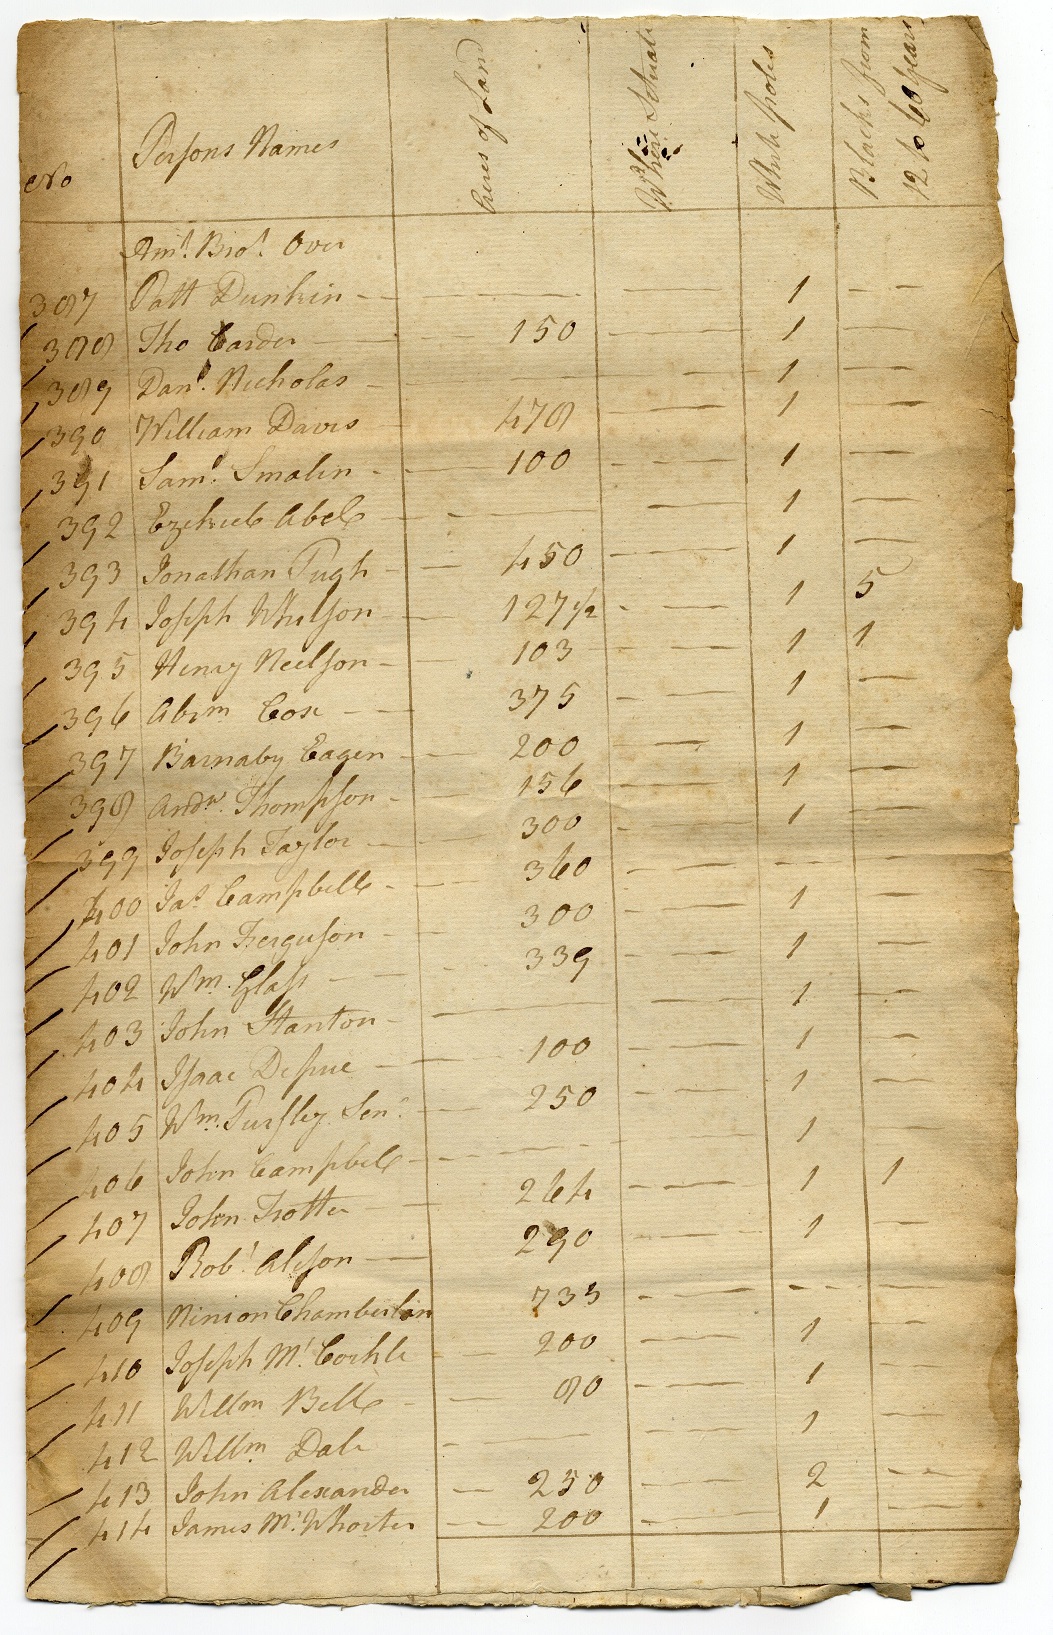 No Persons Names Acres of Land Where Situate White poles Blacks from 12 to 60 years
Amt. Brot. Over
387 Patt Dunkin - - — — — 1 - -
388 Tho Carder — — 150 — — 1 — —
389 Danl. Nicholas - — — — 1 — —
390 William Davis - — 478 — — 1 —
391 Saml. Smalin - - — 100 - — — 1 —
392 Ezekiel Abel — - — — — 1 —
393 Jonathan Pugh - — 450 — — 1 —
394 Joseph Whilson - — 127½ - — 1 5
395 Henry Neelson - — 103 - — 1 1
396 Abrm Cox — — 375 - — 1 —
397 Barnaby Eagen - — 200 — — 1 —
398 Andw. Thompson - — 156 - — 1 —
399 Joseph Taylor - — 300 - — 1 —
400 Jas. Campbell - — 360 - — - - - —
401 John Ferguson - — 300 - — 1 —
402 Wm. Glass - — - 339 - — 1 —
403 John Stanton - — — — 1 —
404 Isaac Depue — — 100 - — 1 —
405 Wm. Pursley Senr. - — 250 - — 1 —
406 John Campbel - - — - - - - — 1 —
407 John Trotter - — 264 - — 1 1
408 Robt. Alison — 290 - — 1 —
409 Ninion Chamberlain 735 - — - - - - -
410 Joseph Mc. Corkle - — 200 - — 1 - -
411 Willm Bell - — 80 - — 1 —
412 Willm. Dale - — — 1 —
413 John Alexander — 250 - — 2 - —
414 James Mc. Whorter - — 200 - — 1 - —